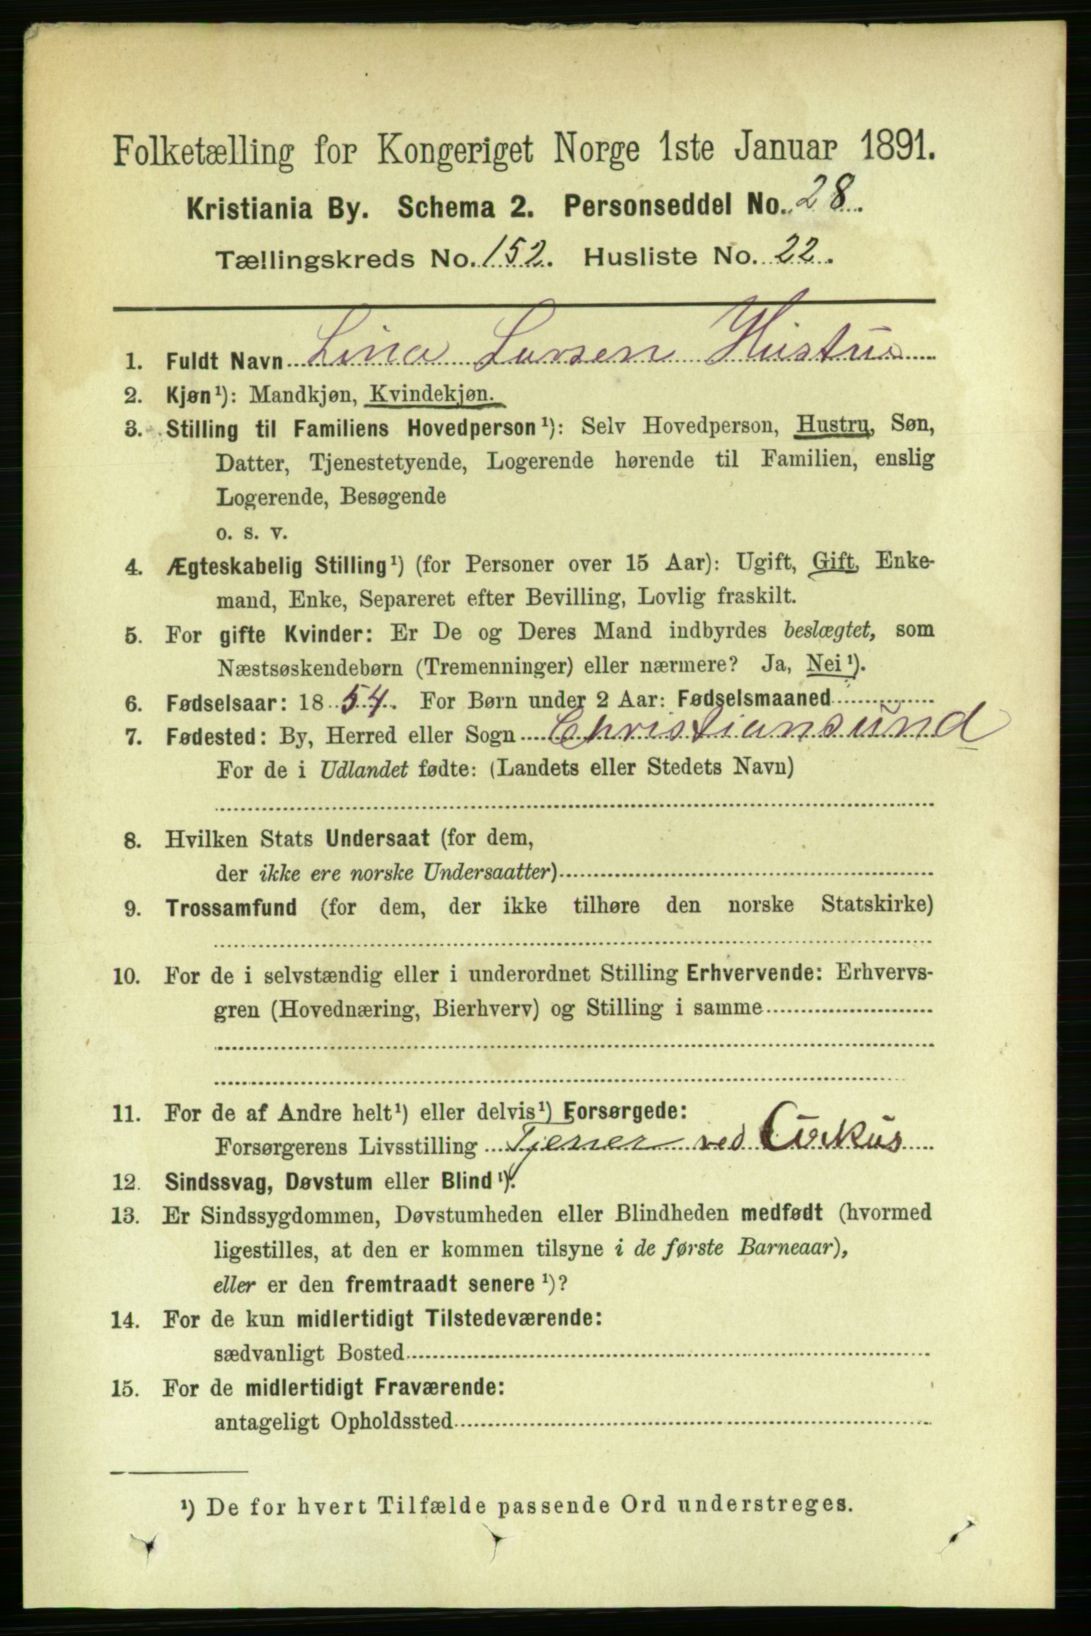 Folketælling for Kongeriget Norge 1ste Januar 1891.
Kristiania By. Schema 2. Personseddel No. 28.
Tællingskreds No. 152. Husliste No. 22.
1. Fuldt Navn Lina Larsen Hustru
2. Kjøn¹): Mandkjøn, Kvindekjøn.
3. Stilling til Familiens Hovedperson¹): Selv Hovedperson, Hustru, Søn,
Datter, Tjenestetyende, Logerende hørende til Familien, enslig
Logerende, Besøgende
o. s. v.
4. Ægteskabelig Stilling¹) (for Personer over 15 Aar): Ugift, Gift, Enke-
mand, Enke, Separeret efter Bevilling, Lovlig fraskilt.
5. For gifte Kvinder: Er De og Deres Mand indbyrdes beslægtet, som
Næstsøskendebørn (Tremenninger) eller nærmere? Ja, Nei¹).
6. Fødselsaar: 1854. For Børn under 2 Aar: Fødselsmaaned
7. Fødested: By, Herred eller Sogn Christiansund
For de i Udlandet fødte: (Landets eller Stedets Navn)
8. Hvilken Stats Undersaat (for dem,
der ikke ere norske Undersaatter)
9. Trossamfund (for dem, der ikke tilhøre den norske Statskirke)
10. For de i selvstændig eller i underordnet Stilling Erhvervende: Erhvervs-
gren (Hovednæring, Bierhverv) og Stilling i samme
11. For de af Andre helt¹) eller delvis¹) Forsørgede:
Forsørgerens Livsstilling Tjener ved Cirkus
12. Sindssvag, Døvstum eller Blind¹).
13. Er Sindssygdommen, Døvstumheden eller Blindheden medfødt (hvormed
ligestilles, at den er kommen tilsyne i de første Barneaar),
eller er den fremtraadt senere¹)?
14. For de kun midlertidigt Tilstedeværende:
sædvanligt Bosted
15. For de midlertidigt Fraværende:
antageligt Opholdssted
¹) De for hvert Tilfælde passende Ord understreges.